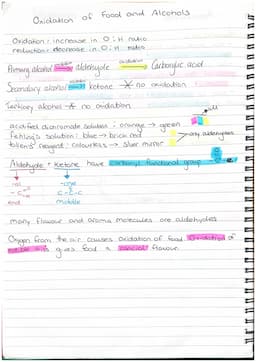 Oxidation of Food and Alcohols
Oxidation: increase in O:H ratio
reduction: decrease in O:H ratio
Primary alcohol oxidation aldehyde oxidation Carboxylic acid
Secondary alcohol ketone no oxidation
Tertiary alcohol no oxidation
acidified dichromate solution - orange → green
fehling's solution: blue → brick red
tollens' reagent: colourless → silver mirror
only aldehydes
Aldehyde + Ketone have carbonyl functional group
-al -one
end middle
many flavour and aroma molecules are aldehydes
Oxygen from the air causes oxidation of food. Oxidation of
gives food a rancid flavour.